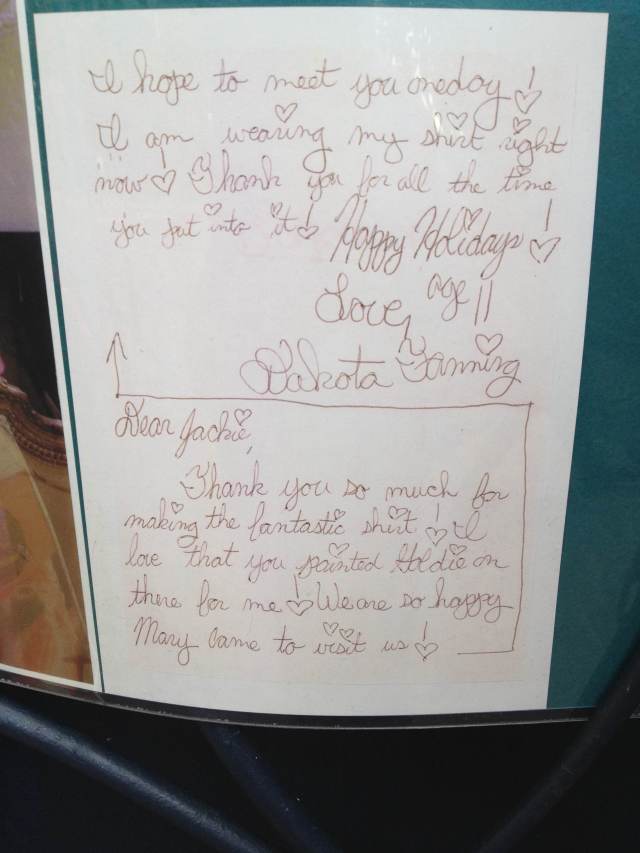 I hope to meet you oneday!
I am wearing my shirt right
now Thank you for all the time
you put into it! Happy Holidays!
Love, age 11
Dakota Fanning
Dear Jackie,
Thank you so much for
making the fantastic shirt! I
love that you painted Goldie on
there for me! We are so happy
Mary Came to visit us!